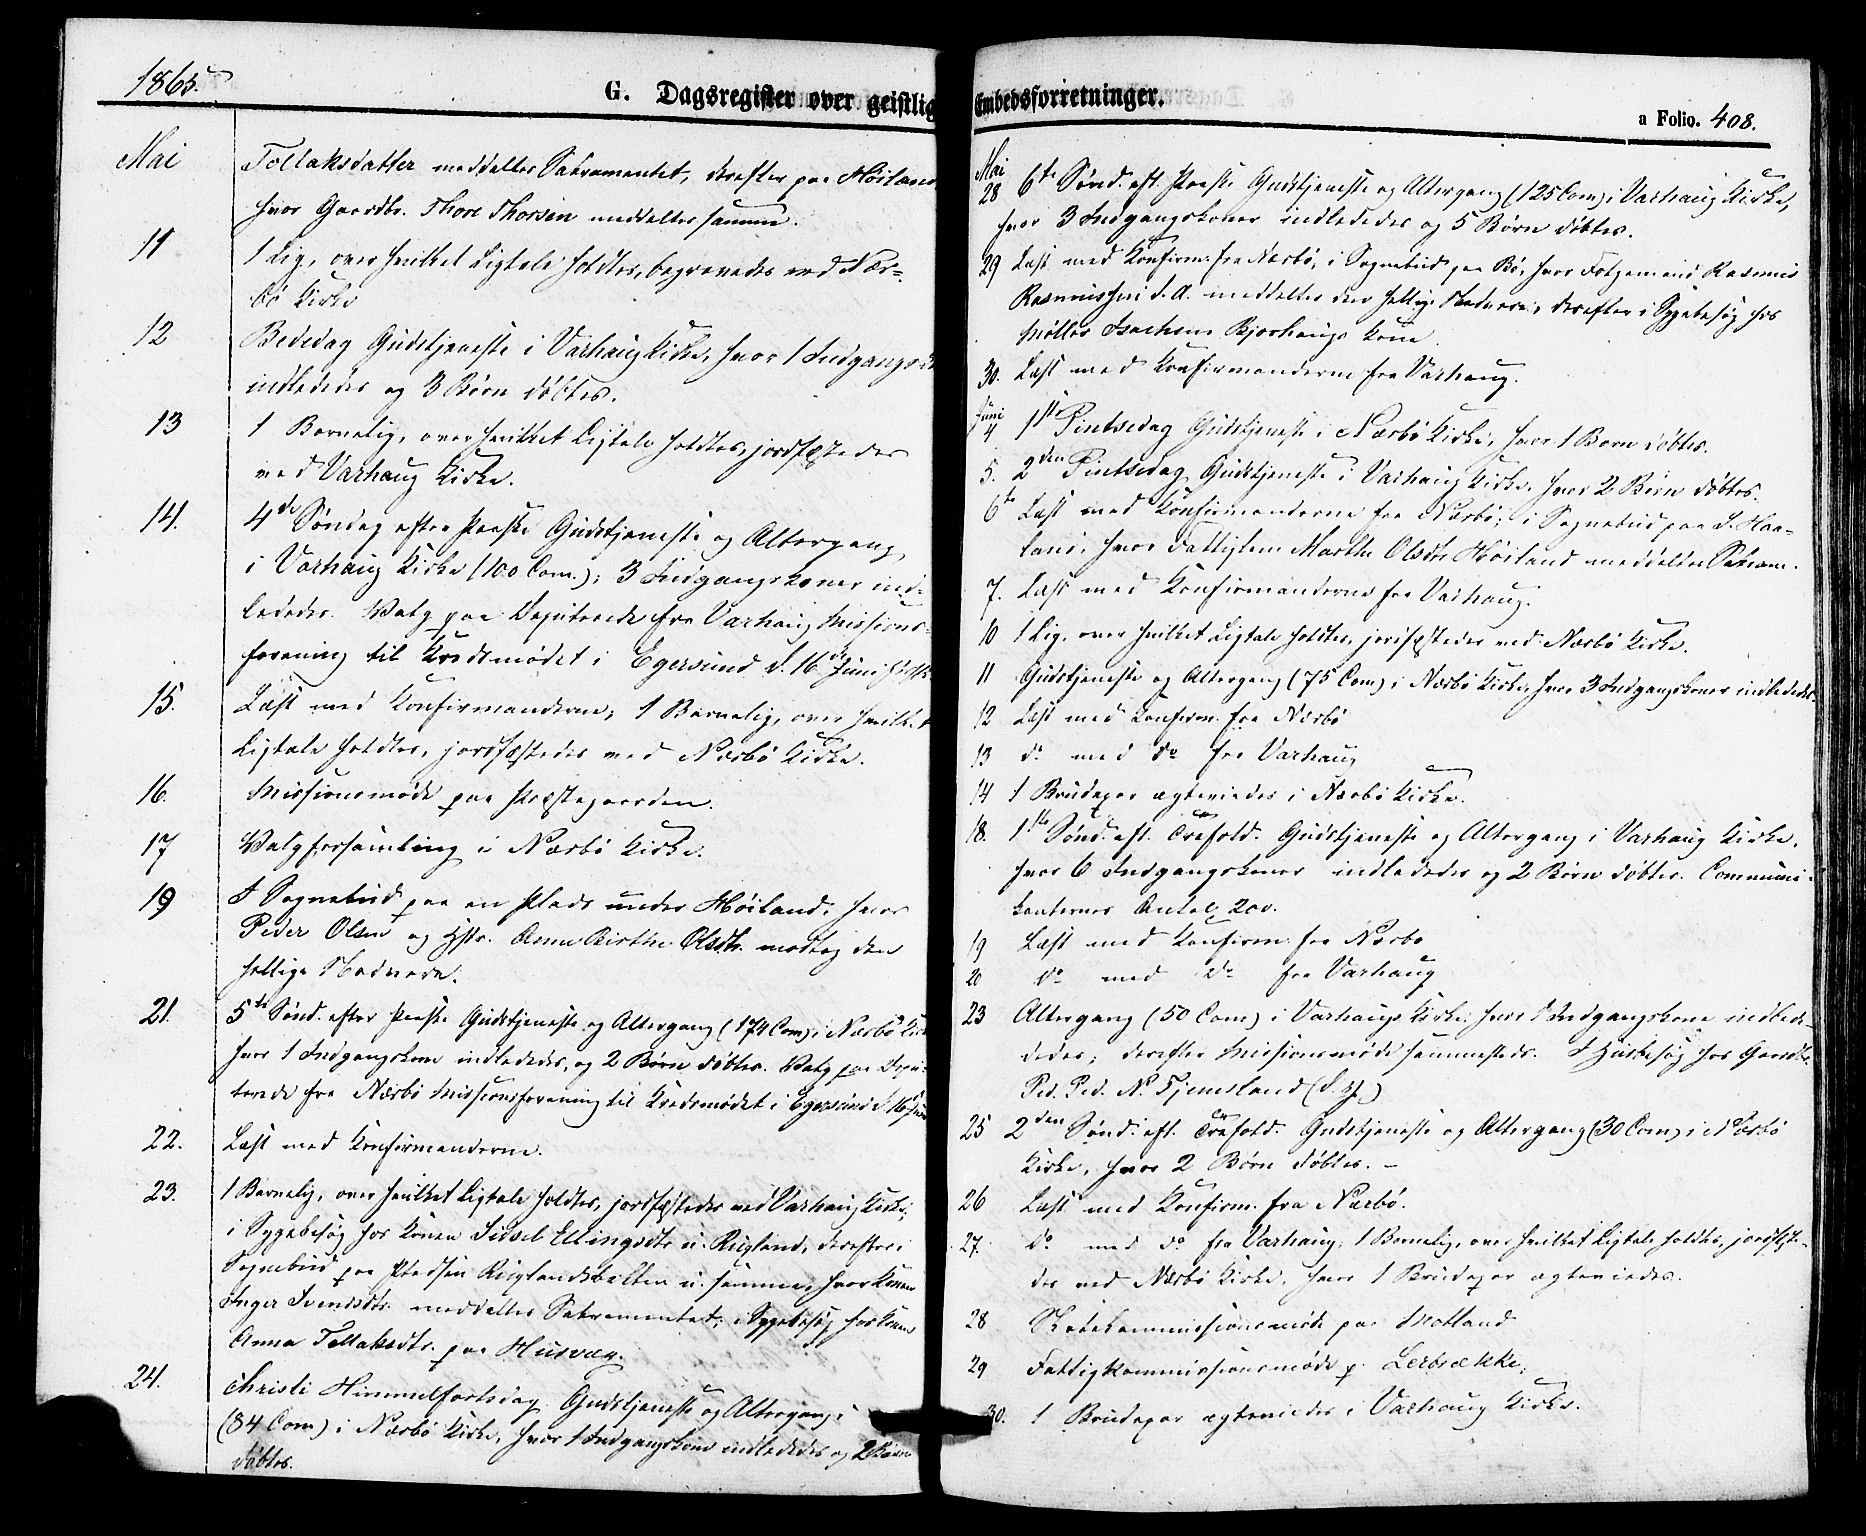 1865.
G. Dagsregister over geistlig
Mai
Tollaksdatter meddeltes Sakramentet, derefter paa Höiland
hvor Gaardbr. Thore Thorsen meddeltes samme.
11
1 Lig, over hvilket Ligtale holdtes, begravedes ved Nær-
bö Kirke
12
Bededag Gudstjeneste i Varhaug Kirke, hvor 1 Indgangsk
indlededes og 3 Börn döbtes.
13
1 Barnelig, over hvilket Ligtale holdtes, jordfæstedes
ved Varhaug Kirke.
14.
4de Söndag efter Paaske Gudstjeneste og Altergang
i Varhaug Kirke (100 Com.); 3 Indgangskoner ind-
lededes. Valg paa Deputerede fra Varhaug Missions-
forening til Kredsmödet i Egersund d. 16de Juni
15.
Læst med Konfirmanderne; 1 Barnelig, over hvilket
Ligtale holdtes, jordfæstedes ved Nærbö Kirke.
16.
Missionsmöde paa Præstegaarden.
17
Valgforsamling i Nærbö Kirke.
19
I Sognebud paa en Plads under Höiland, hvor
Peder Olsen og Hstr. Anna Birthe Olsdtr. modtog den
hellige Nadvere.
21.
5te Sönd. efter Paaske Gudstjeneste og Altergang (174 Com) i Nærbö Kirk
hvor 1 Indgangskone indlededes, og 2 Börn döbtes. Valg paa Depu-
terede fra Nærbö Missionsforening til Kredsmödet i Egersund d. 16 Juni
22.
Læst med Konfirmanderne.
23.
1 Barnelig, over hvilket Ligtale holdtes, jordfæstedes ved Varhaug Kirke;
i Sygebesög hos Konen Sidsel Ellingsdtr u. Rugland, derefter i
Sognebud paa Pladsen Ruglandsbakken u. samme, hvor Konen
Inger Svendsdtr. meddeltes Sakramentet; i Sygebesög hos Konen
Anna Tollaksdtr. paa Husvæg.
24.
Christi Himmelfartsdag Gudstjeneste og Altergang
(84 Com) i Nærbö Kirke, hvor 1 Indgangskone indlededes og 2 Börn
döbtes.
Embedsforretninger.
a Folio. 408.
Mai
28 6te Sönd. eft. Paaske Gudstjeneste og Altergang (125 Com) i Varhaug Kirke,
hvor 3 Indgangskoner indlededes og 5 Börn döbtes.
29 Læst med Konfirm. fra Nærbö; i Sognebud paa Bö, hvor Folgemand Rasmus
Rasmussen d. Æ. meddeltes den hellige Nadvere; derefter i Sygebesög hos
Möller Isachsen Bjorhaugs Kone.
30. Læst med Konfirmanderne fra Varhaug.
Juni
4 1ste Pintsedag Gudstjeneste i Nærbö Kirke, hvor 1 Barn döbtes.
5. 2den Pintsedag Gudstjeneste i Varhaug Kirke, hvor 2 Börn döbtes.
6te Læst med Konfirmanderne fra Nærbö; i Sognebud paa S. Haa-
land, hvor Fattiglem Marthe Olsdtr Höiland meddeltes Sakram.
7. Læst med Konfirmanderne fra Varhaug.
10 1 Lig, over hvilket Ligtale holdtes, jordfæstedes ved Nærbö Kirke.
11 Gudstjeneste og Altergang (75 Com) i Nærbö Kirke, hvor 3 Indgangskoner indlededes.
12 Læst med Konfirm. fra Nærbö
13 do med do fra Varhaug
14 1 Brudepar ægteviedes i Nærbö Kirke.
18. 1ste Sönd. eft. Trefold. Gudstjeneste og Altergang i Varhaug Kirke,
hvor 6 Indgangskoner indlededes og 2 Börn döbtes. Communi-
kanternes Antal 200.
19 Læst med Konfirm. fra Nærbö
20 do med do fra Varhaug
23 Altergang (50 Com) i Varhaugs Kirke, hvor 1 Indgangskone indlede-
dedes; derefter Missionsmöde sammesteds. I Husbesög hos Gaardbr.
Ped. Ped. N. Tjemsland
25 2den Sönd. eft. Trefold. Gudstjeneste og Altergang (30 Com) i Nærbö
Kirke, hvor 2 Börn döbtes. –
26 Læst med Konfirm. fra Nærbö.
27. do med do fra Varhaug; 1 Barnelig, over hvilket Ligtale holdtes, jordfæste-
des ved Nærbö Kirke, hvor 1 Brudepar ægteviedes.
28 Skolekommissionsmöde paa Motland
29 Fattigkommissionsmöde p. Lerbrække;
30. 1 Brudepar ægteviedes i Varhaug Kirke.